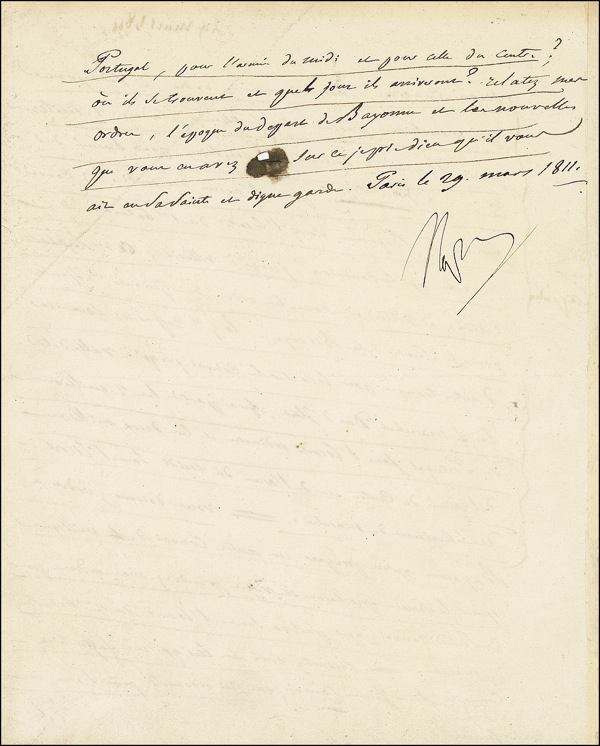 Portugal, pour l'armée du midi et pour celle du centre?
où ils se trouvent et quels jour ils arriveront? relatez mes
ordres, l'époque du départ de Bayonne et les nouvelles
que vous en avez sur ce je prie dieu qu'il vous
ait en sa sainte et digne garde. Paris le 29. mars 1811.
Nap